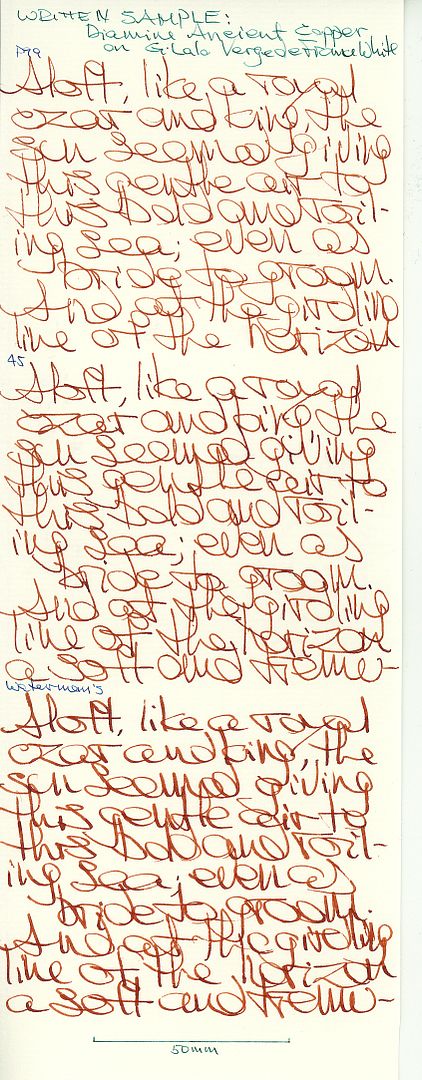 WRITTEN SAMPLE:
Diamine Ancient Copper
on G.Lalo VergedeFranceWhite
P99
Aloft, like a royal
czar and king, the
sun seemed giving
this gentle air to
this bold and roil-
ing sea; even as
bride to groom.
And at the girdling
line of the horizon
45
Aloft, like a royal
czar and king, the
sun seemed giving
this gentle air to
this bold and roil-
ing sea; even as
bride to groom.
And at the girdling
line of the horizon
a soft and tremu-
Waterman's
Aloft, like a royal
czar and king, the
sun seemed giving
this gentle air to
this bold and roil-
ing sea; even as
bride to groom.
And at the girdling
line of the horizon
a soft and tremu-
50mm